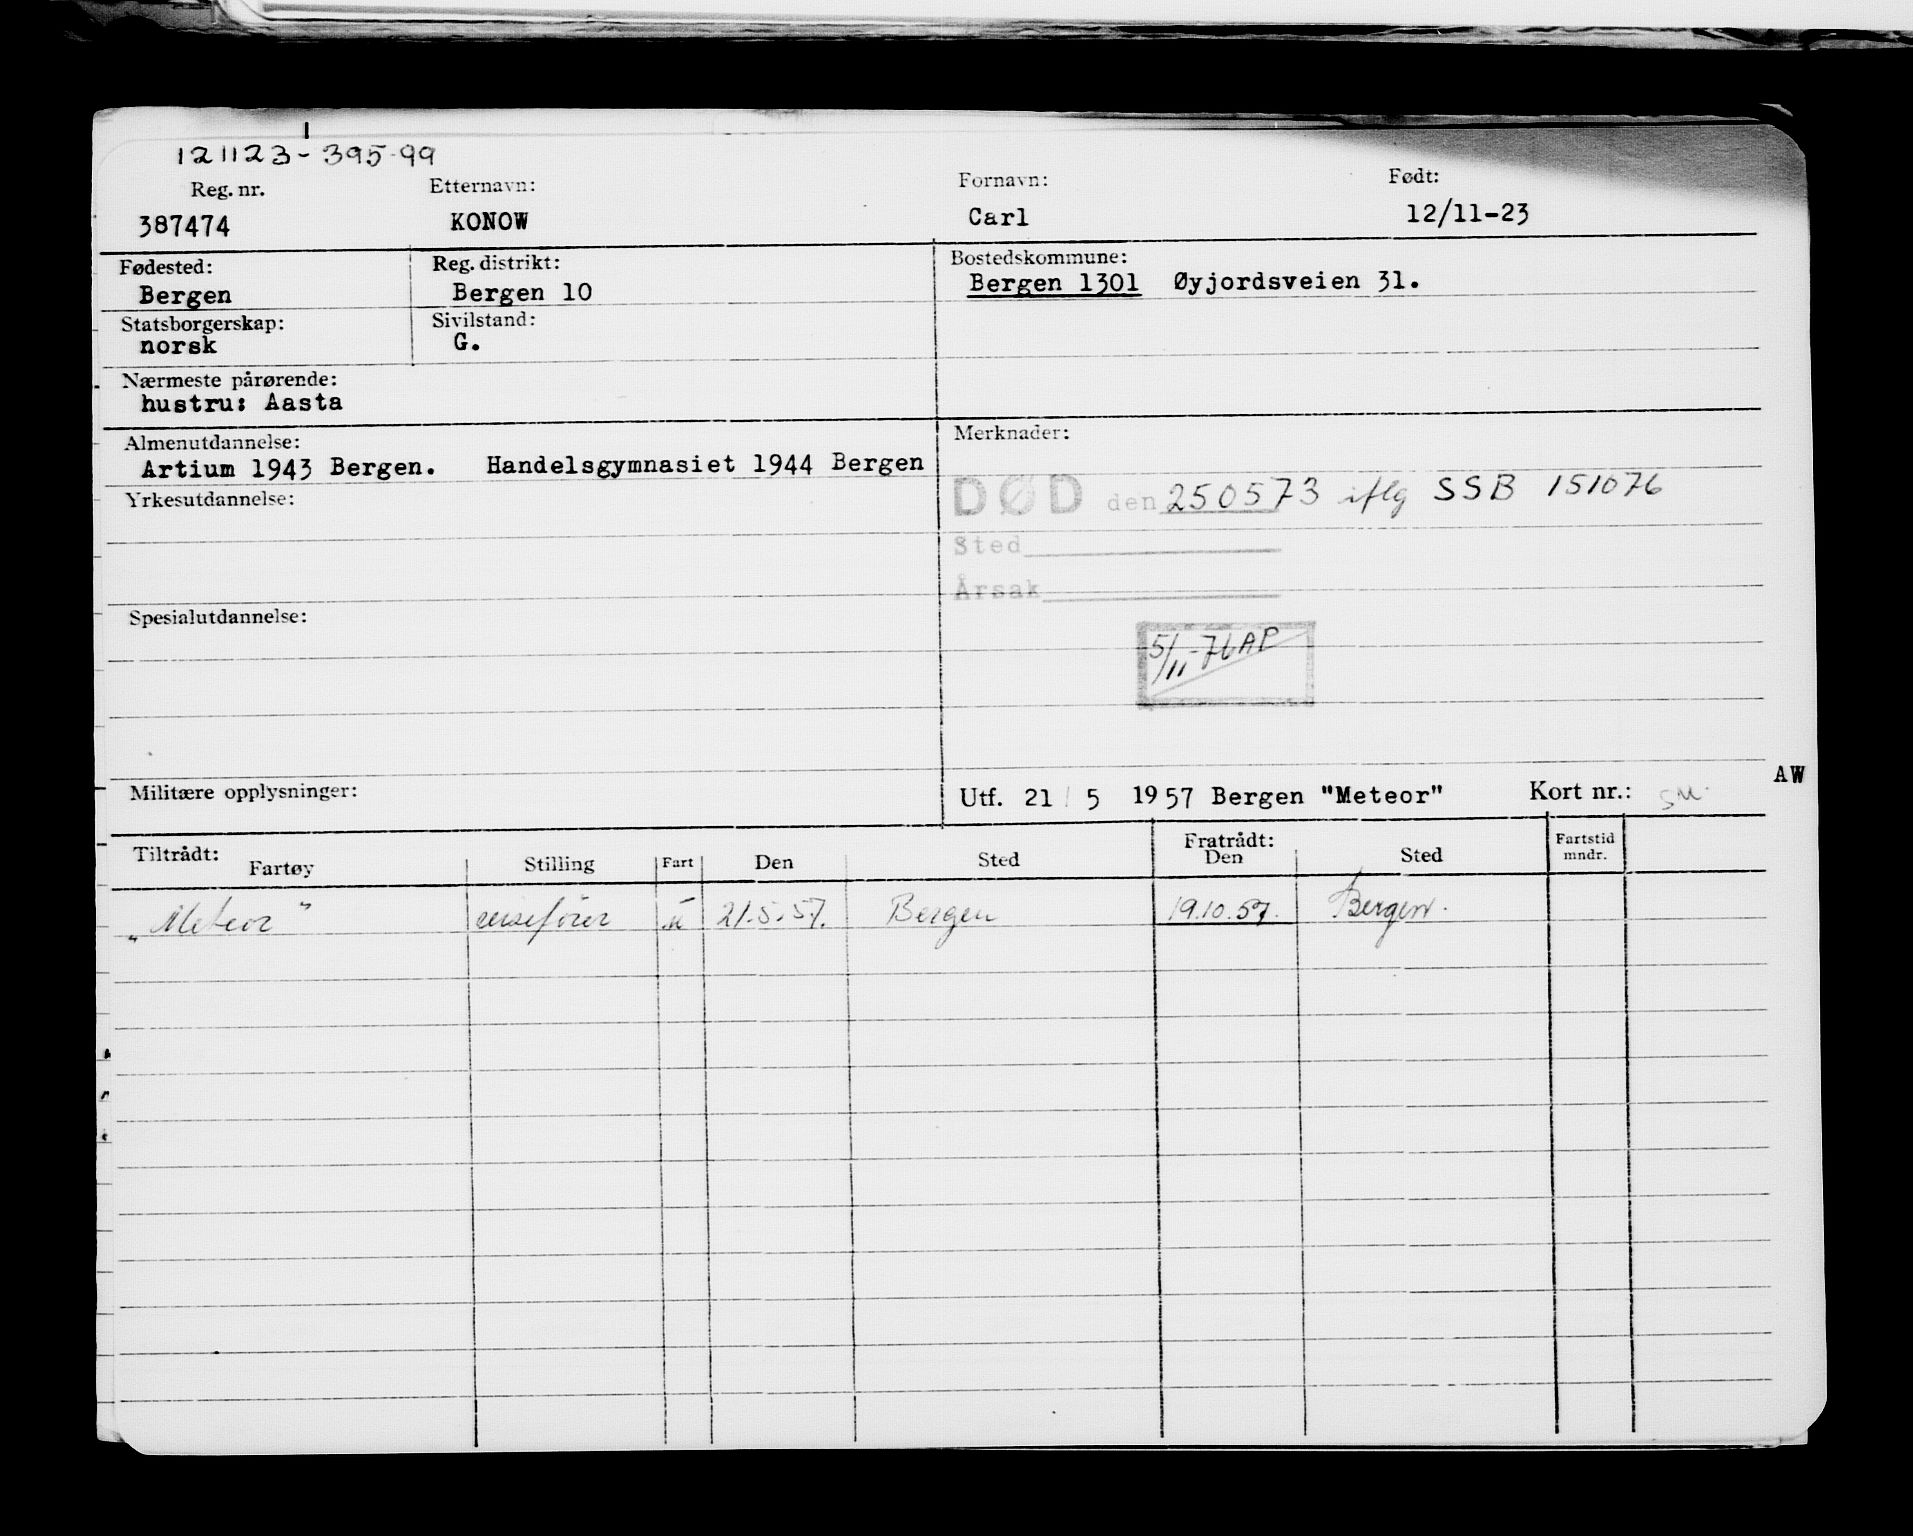 121123-395-99
Reg. nr. Etternavn: Fornavn: Født:
387474 KONOW Carl 12/11-23
Fødested: Reg. distrikt: Bostedskommune:
Bergen Bergen 10 Bergen 1301 Øyjordsveien 31.
Statsborgerskap: Sivilstand:
norsk G.
Nærmeste pårørende:
hustru: Aasta
Almenutdannelse: Merknader:
Artium 1943 Bergen. Handelsgymnasiet 1944 Bergen
Yrkesutdannelse:
DØD den 250573 iflg SSB 151076
Sted
Årsak
Spesialutdannelse:
5/11-76 AP
AW
Militære opplysninger: Utf. 21/5 1957 Bergen "Meteor" Kort nr.:
Tiltrådt: Fratrådt:
Fartøy Stilling Fart Den Sted Den Sted Fartstid mndr.
"Meteor" reisefører u 21.5.57. Bergen 19.10.57. Bergen.